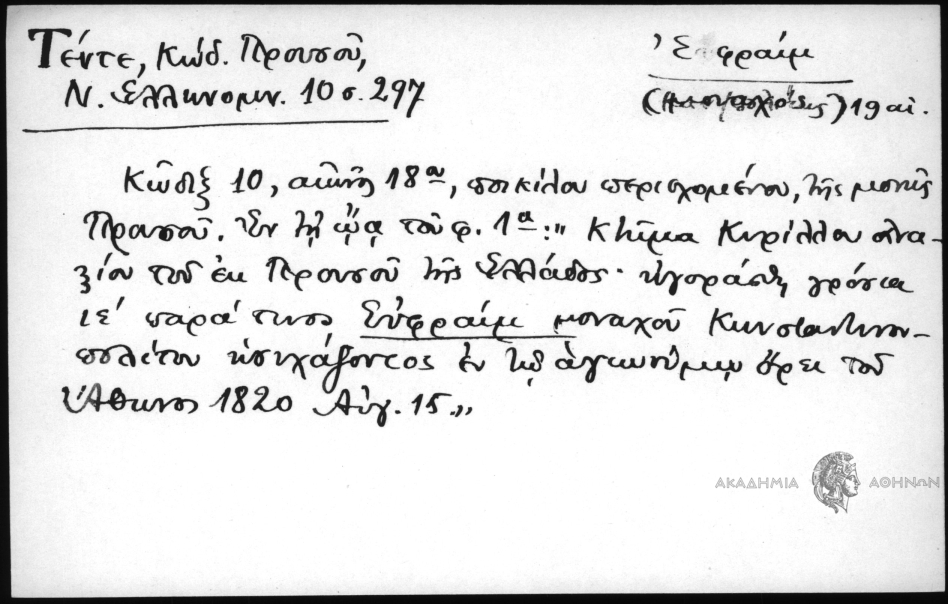 Τέντε, Κώδ. Προυσοῦ,
Ν. Ἑλληνομν. 10 σ. 297
Ἐφραίμ
19 αἰ.
Κῶδιξ 10, αἰῶνος 18ου, ποικίλου περιεχομένου, τῆς μονῆς
Προυσοῦ. Ἐν τῇ ᾤᾳ τοῦ φ. 1α: „ Κτῆμα Κυρίλλου
τοῦ ἐκ Προυσοῦ τῆς Ἑλλάδος· ἠγοράσθη γρόσια
ιε´ παρά τινος Εὐφραίμ μοναχοῦ Κωνσταντινου-
πολίτου ἡσυχάζοντος ἐν τῷ ἁγιωνύμῳ ὄρει τοῦ
Ἄθωνος 1820 Αὐγ. 15„
ΑΚΑΔΗΜΙΑ ΑΘΗΝΩΝ